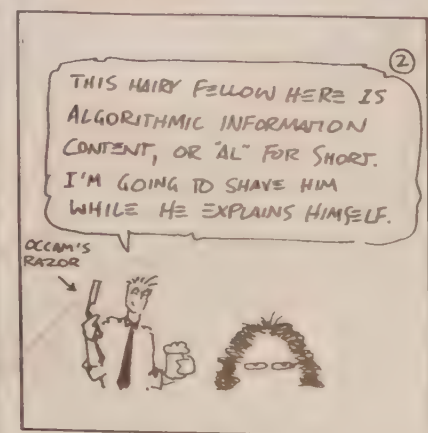 ②
THIS HAIRY FELLOW HERE IS
ALGORITHMIC INFORMATION
CONTENT, OR "AL" FOR SHORT.
I'M GOING TO SHAVE HIM
WHILE HE EXPLAINS HIMSELF.
OCCAM'S
RAZOR